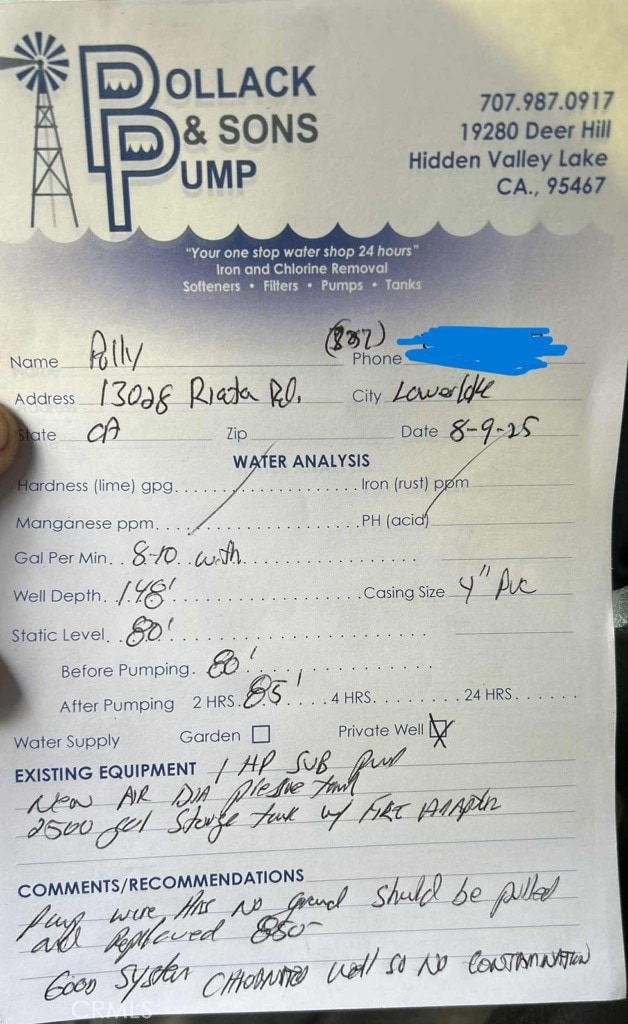 POLLACK
& SONS
PUMP
707.987.0917
19280 Deer Hill
Hidden Valley Lake
CA., 95467
"Your one stop water shop 24 hours"
Iron and Chlorine Removal
Softeners • Filters • Pumps • Tanks
Name Polly Phone
Address 13028 Riata Rd. City Lowerlake
State CA Zip Date 8-9-25
WATER ANALYSIS
Hardness (lime) gpg Iron (rust) ppm
Manganese ppm PH (acid)
Gal Per Min. 8-10 with
Well Depth. 148' Casing Size 4" PVC
Static Level. 80'
Before Pumping. 80'
After Pumping 2 HRS. 85' 4 HRS. 24 HRS.
Water Supply Garden Private Well
EXISTING EQUIPMENT 1 HP SUB pump
New AIR DIA pressure tank
2500 gal Storge tank w/ FIRE Adapter
COMMENTS/RECOMMENDATIONS
Pump wire Has No ground should be pulled
and Replaced 850-
Good System Chlorinated well so No CONTAMINATION
CRMLS